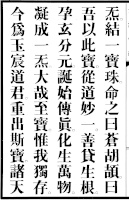 炁結一寶珠命之曰蒼胡頡曰
吾以此寶從道妙一善貸生根
孕玄分元誕始傳眞化生萬物
凝成一炁大哉至寶惟我獨存
今爲玉宸道君重出斯寶諸天